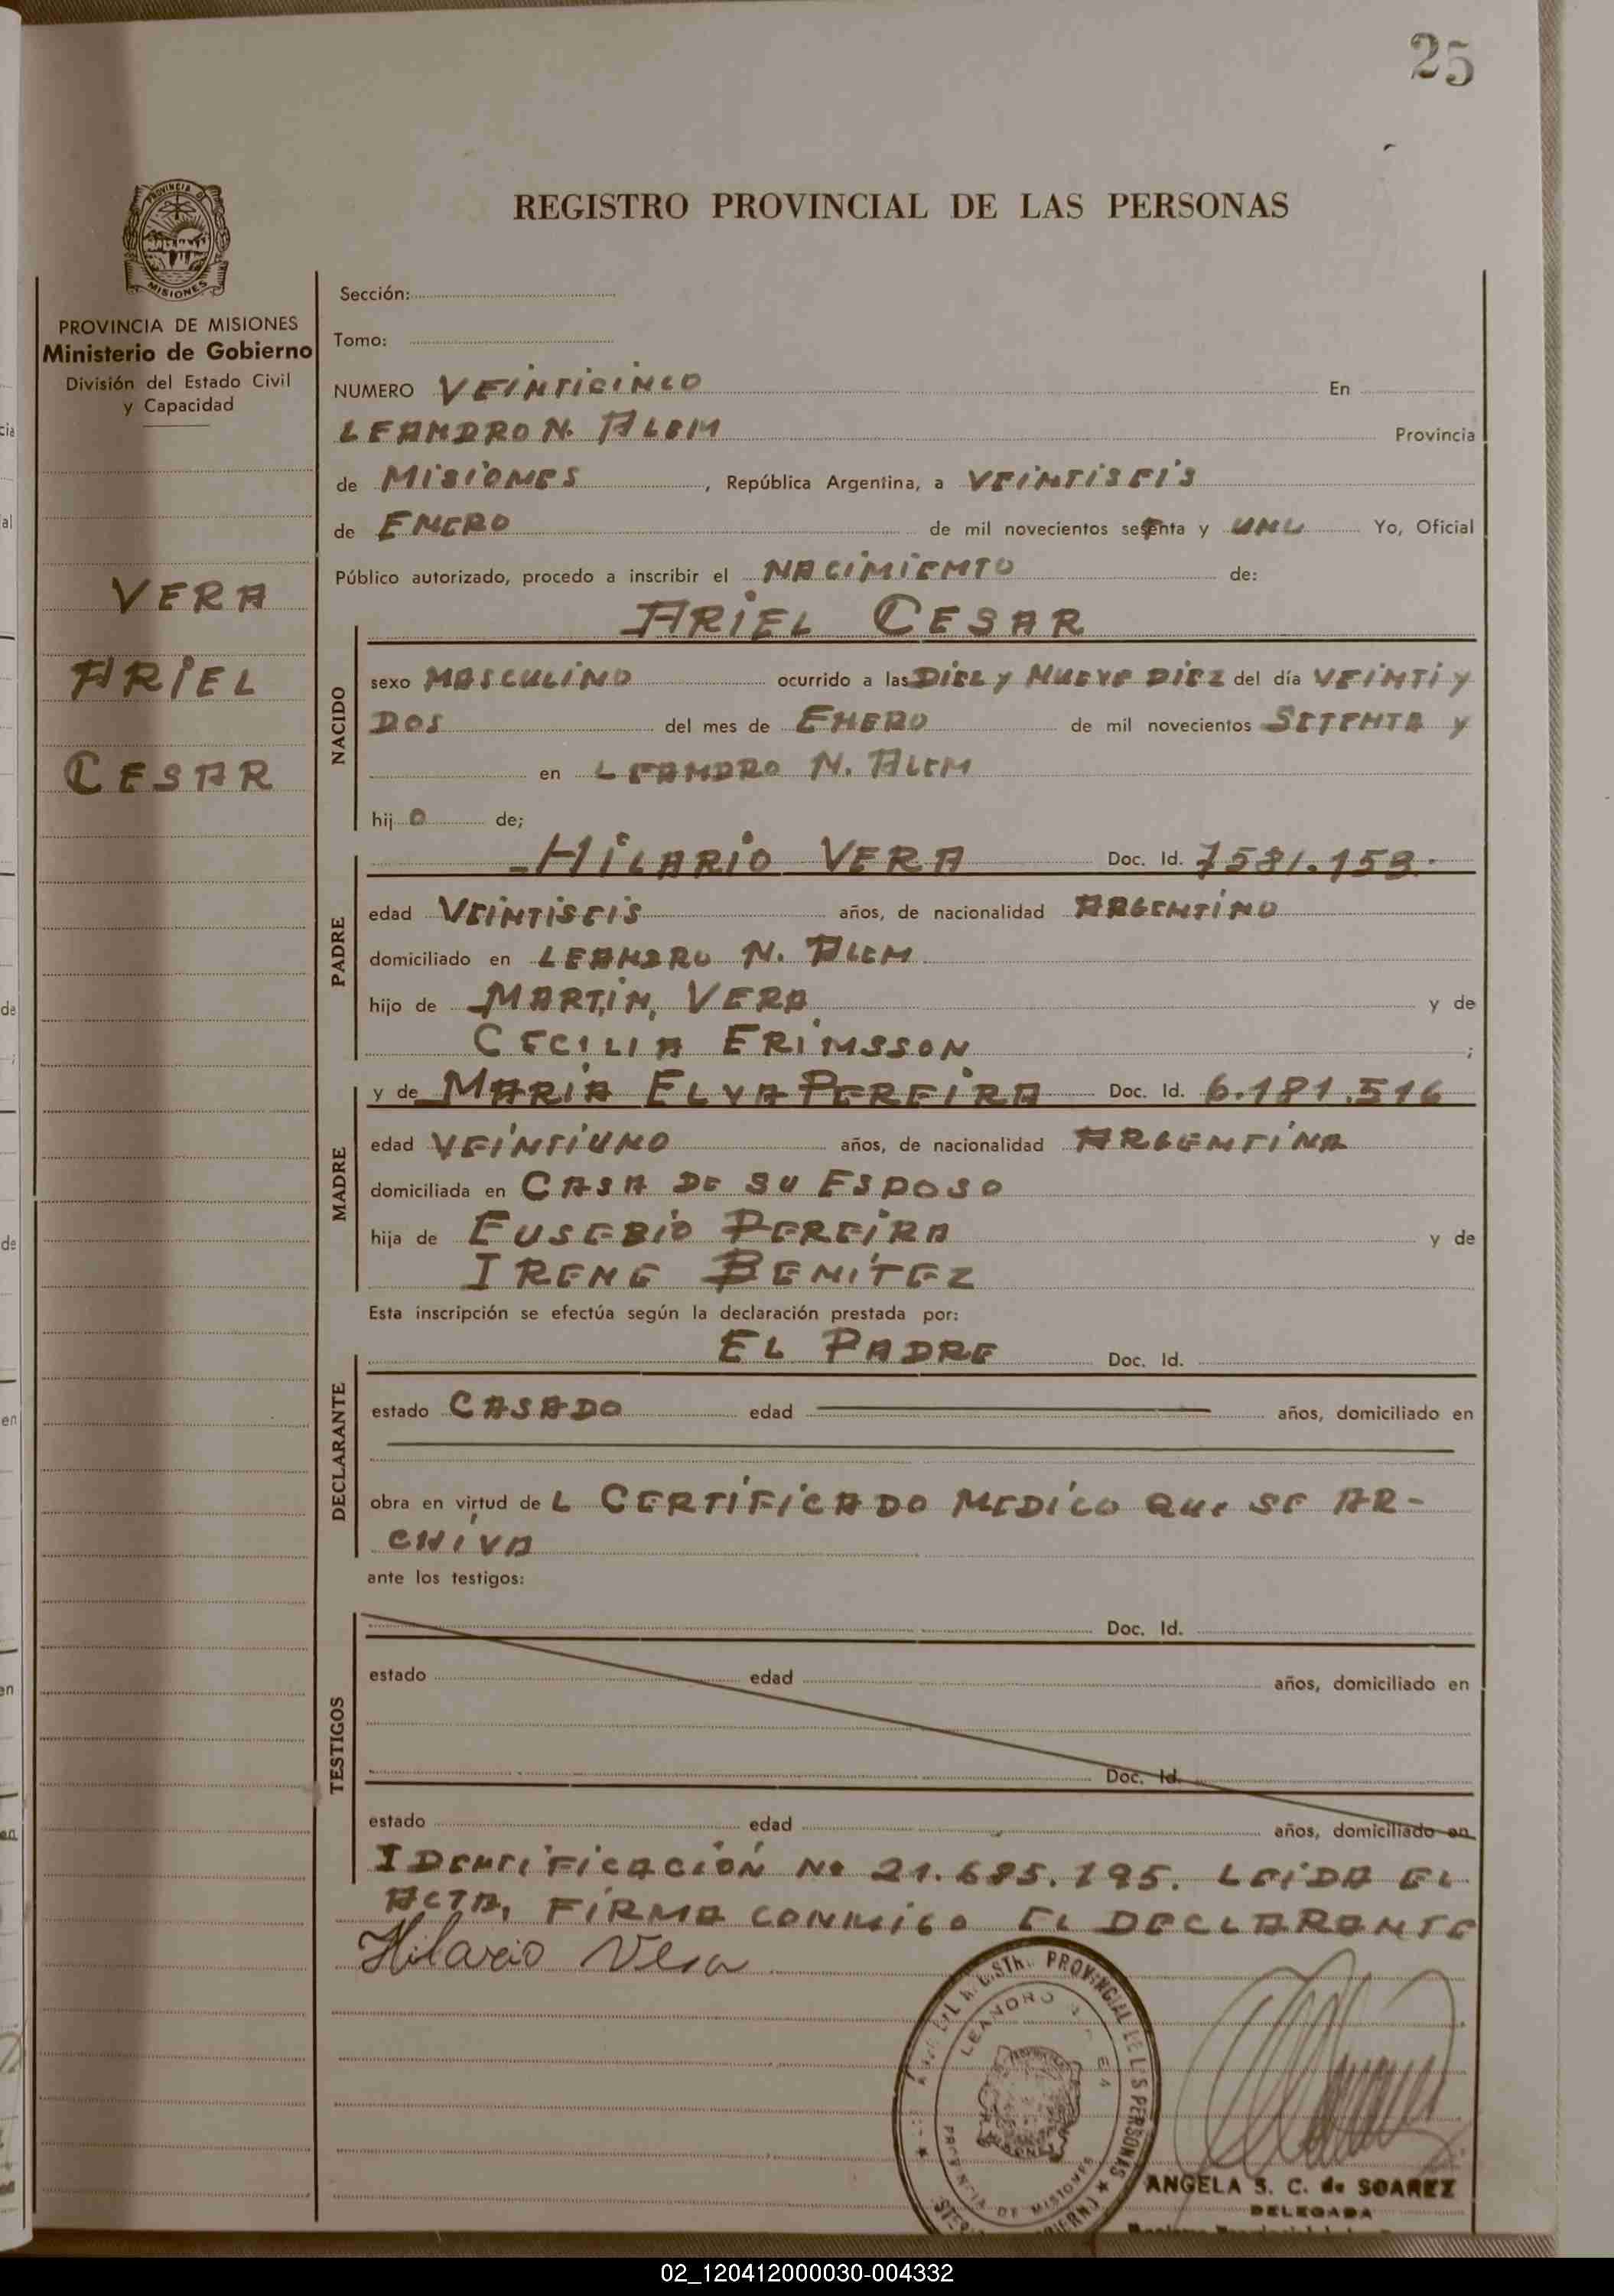 25
REGISTRO PROVINCIAL DE LAS PERSONAS
PROVINCIA DE MISIONES
Ministerio de Gobierno
División del Estado Civil
y Capacidad
VERA
ARIEL
CESAR
Sección:
Tomo:
NUMERO VEINTICINCO En
LEANDRO N. ALEM Provincia
de MISIONES, República Argentina, a VEINTISEIS
de ENERO de mil novecientos setenta y UNO Yo, Oficial
Público autorizado, procedo a inscribir el NACIMIENTO de:
ARIEL CESAR
NACIDO
sexo MASCULINO ocurrido a las DIEZ y NUEVE DIEZ del día VEINTI y
DOS del mes de ENERO de mil novecientos SETENTA y
en LEANDRO N. ALEM
hijo de;
PADRE
HILARIO VERA Doc. Id. 7581.158.
edad VEINTISEIS años, de nacionalidad ARGENTINO
domiciliado en LEANDRO N. ALEM
hijo de MARTIN, VERA y de
CECILIA ERIMSSON ;
MADRE
y de MARIA ELVA PEREIRA Doc. Id. 6.181.516
edad VEINTIUNO años, de nacionalidad ARGENTINA
domiciliada en CASA DE SU ESPOSO
hija de EUSEBIO PEREIRA y de
IRENE BENITEZ
Esta inscripción se efectúa según la declaración prestada por:
DECLARANTE
EL PADRE Doc. Id.
estado CASADO edad años, domiciliado en
obra en virtud de L CERTIFICADO MEDICO QUE SE AR-
CHIVA
ante los testigos:
TESTIGOS
Doc. Id.
estado edad años, domiciliado en
Doc. Id.
estado edad años, domiciliado en
IDENTIFICACIÓN No 21.685.195. LEIDA EL
ACTA, FIRMA CONMIGO EL DECLARANTE
Hilario Vera
PROVINCIAL DE LAS PERSONAS
LEANDRO
PROVINCIA DE MISIONES
ANGELA S. C. de SOAREZ
DELEGADA
02_120412000030-004332